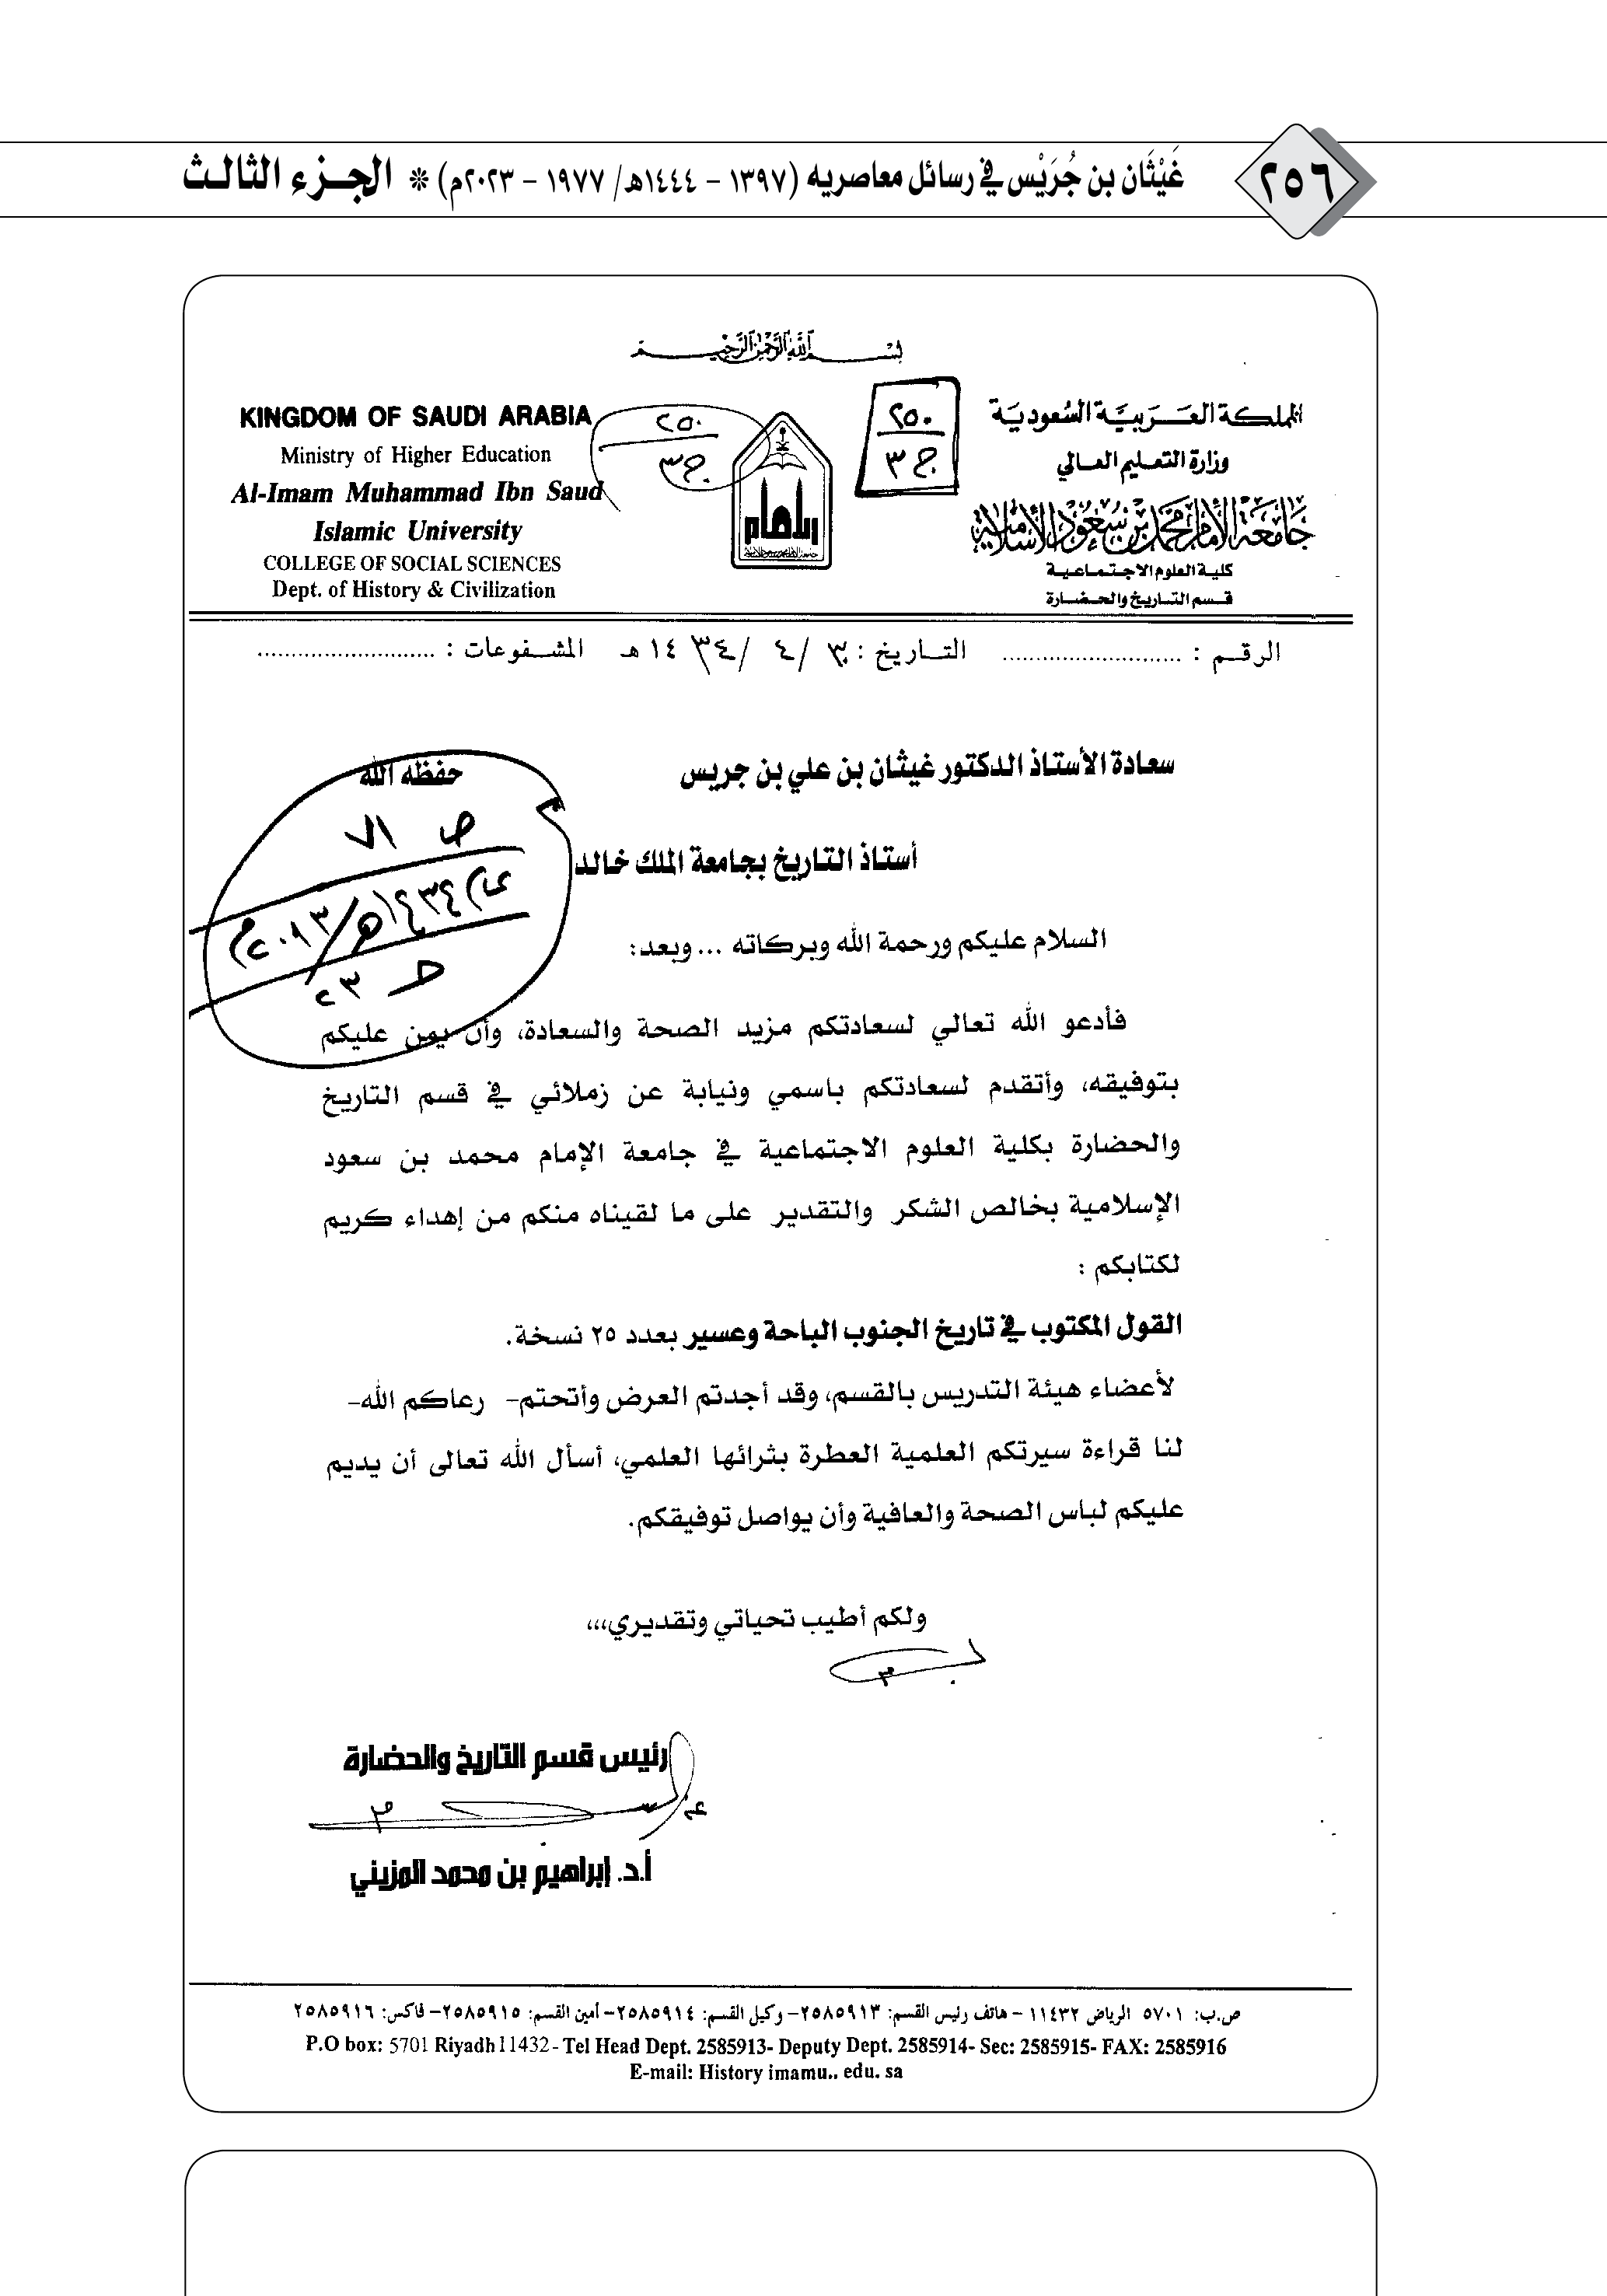 ٢٥٦
غَيْثَان بن جُرَيْس في رسائل معاصريه (١٣٩٧ – ١٤٤٤هـ/ ١٩٧٧ – ٢٠٢٣م) * الجزء الثالث
بسم الله الرحمن الرحيم
المملكة العربية السعودية
وزارة التعليم العالي
جامعة الإمام محمد بن سعود الإسلامية
كلية العلوم الاجتماعية
قسم التاريخ والحضارة
٢٥٠
ج ٣
٢٥٠
ج ٣
KINGDOM OF SAUDI ARABIA
Ministry of Higher Education
Al-Imam Muhammad Ibn Saud
Islamic University
COLLEGE OF SOCIAL SCIENCES
Dept. of History & Civilization
الرقم : .......................... التاريخ : / ٤ / ١٤٣٤ هـ المشفوعات : ..........................
سعادة الأستاذ الدكتور غيثان بن علي بن جريس حفظه الله
أستاذ التاريخ بجامعة الملك خالد
ص ٧١
١٤٣٤هـ/٢٠١٣م
حـ ٢٣
السلام عليكم ورحمة الله وبركاته ... وبعد:
فأدعو الله تعالي لسعادتكم مزيد الصحة والسعادة، وأن يمن عليكم
بتوفيقه، وأتقدم لسعادتكم باسمي ونيابة عن زملائي في قسم التاريخ
والحضارة بكلية العلوم الاجتماعية في جامعة الإمام محمد بن سعود
الإسلامية بخالص الشكر والتقدير على ما لقيناه منكم من إهداء كريم
لكتابكم :
القول المكتوب في تاريخ الجنوب الباحة وعسير بعدد ٢٥ نسخة.
لأعضاء هيئة التدريس بالقسم، وقد أجدتم العرض وأتحتم- رعاكم الله-
لنا قراءة سيرتكم العلمية العطرة بثرائها العلمي، أسأل الله تعالى أن يديم
عليكم لباس الصحة والعافية وأن يواصل توفيقكم.
ولكم أطيب تحياتي وتقديري،،،
رئيس قسم التاريخ والحضارة
أ.د. إبراهيم بن محمد المزيني
ص.ب: ٥٧٠١ الرياض ١١٤٣٢ – هاتف رئيس القسم: ٢٥٨٥٩١٣– وكيل القسم: ٢٥٨٥٩١٤– أمين القسم: ٢٥٨٥٩١٥– فاكس: ٢٥٨٥٩١٦
P.O box: 5701 Riyadh 11432- Tel Head Dept. 2585913- Deputy Dept. 2585914- Sec: 2585915- FAX: 2585916
E-mail: History imamu.. edu. sa